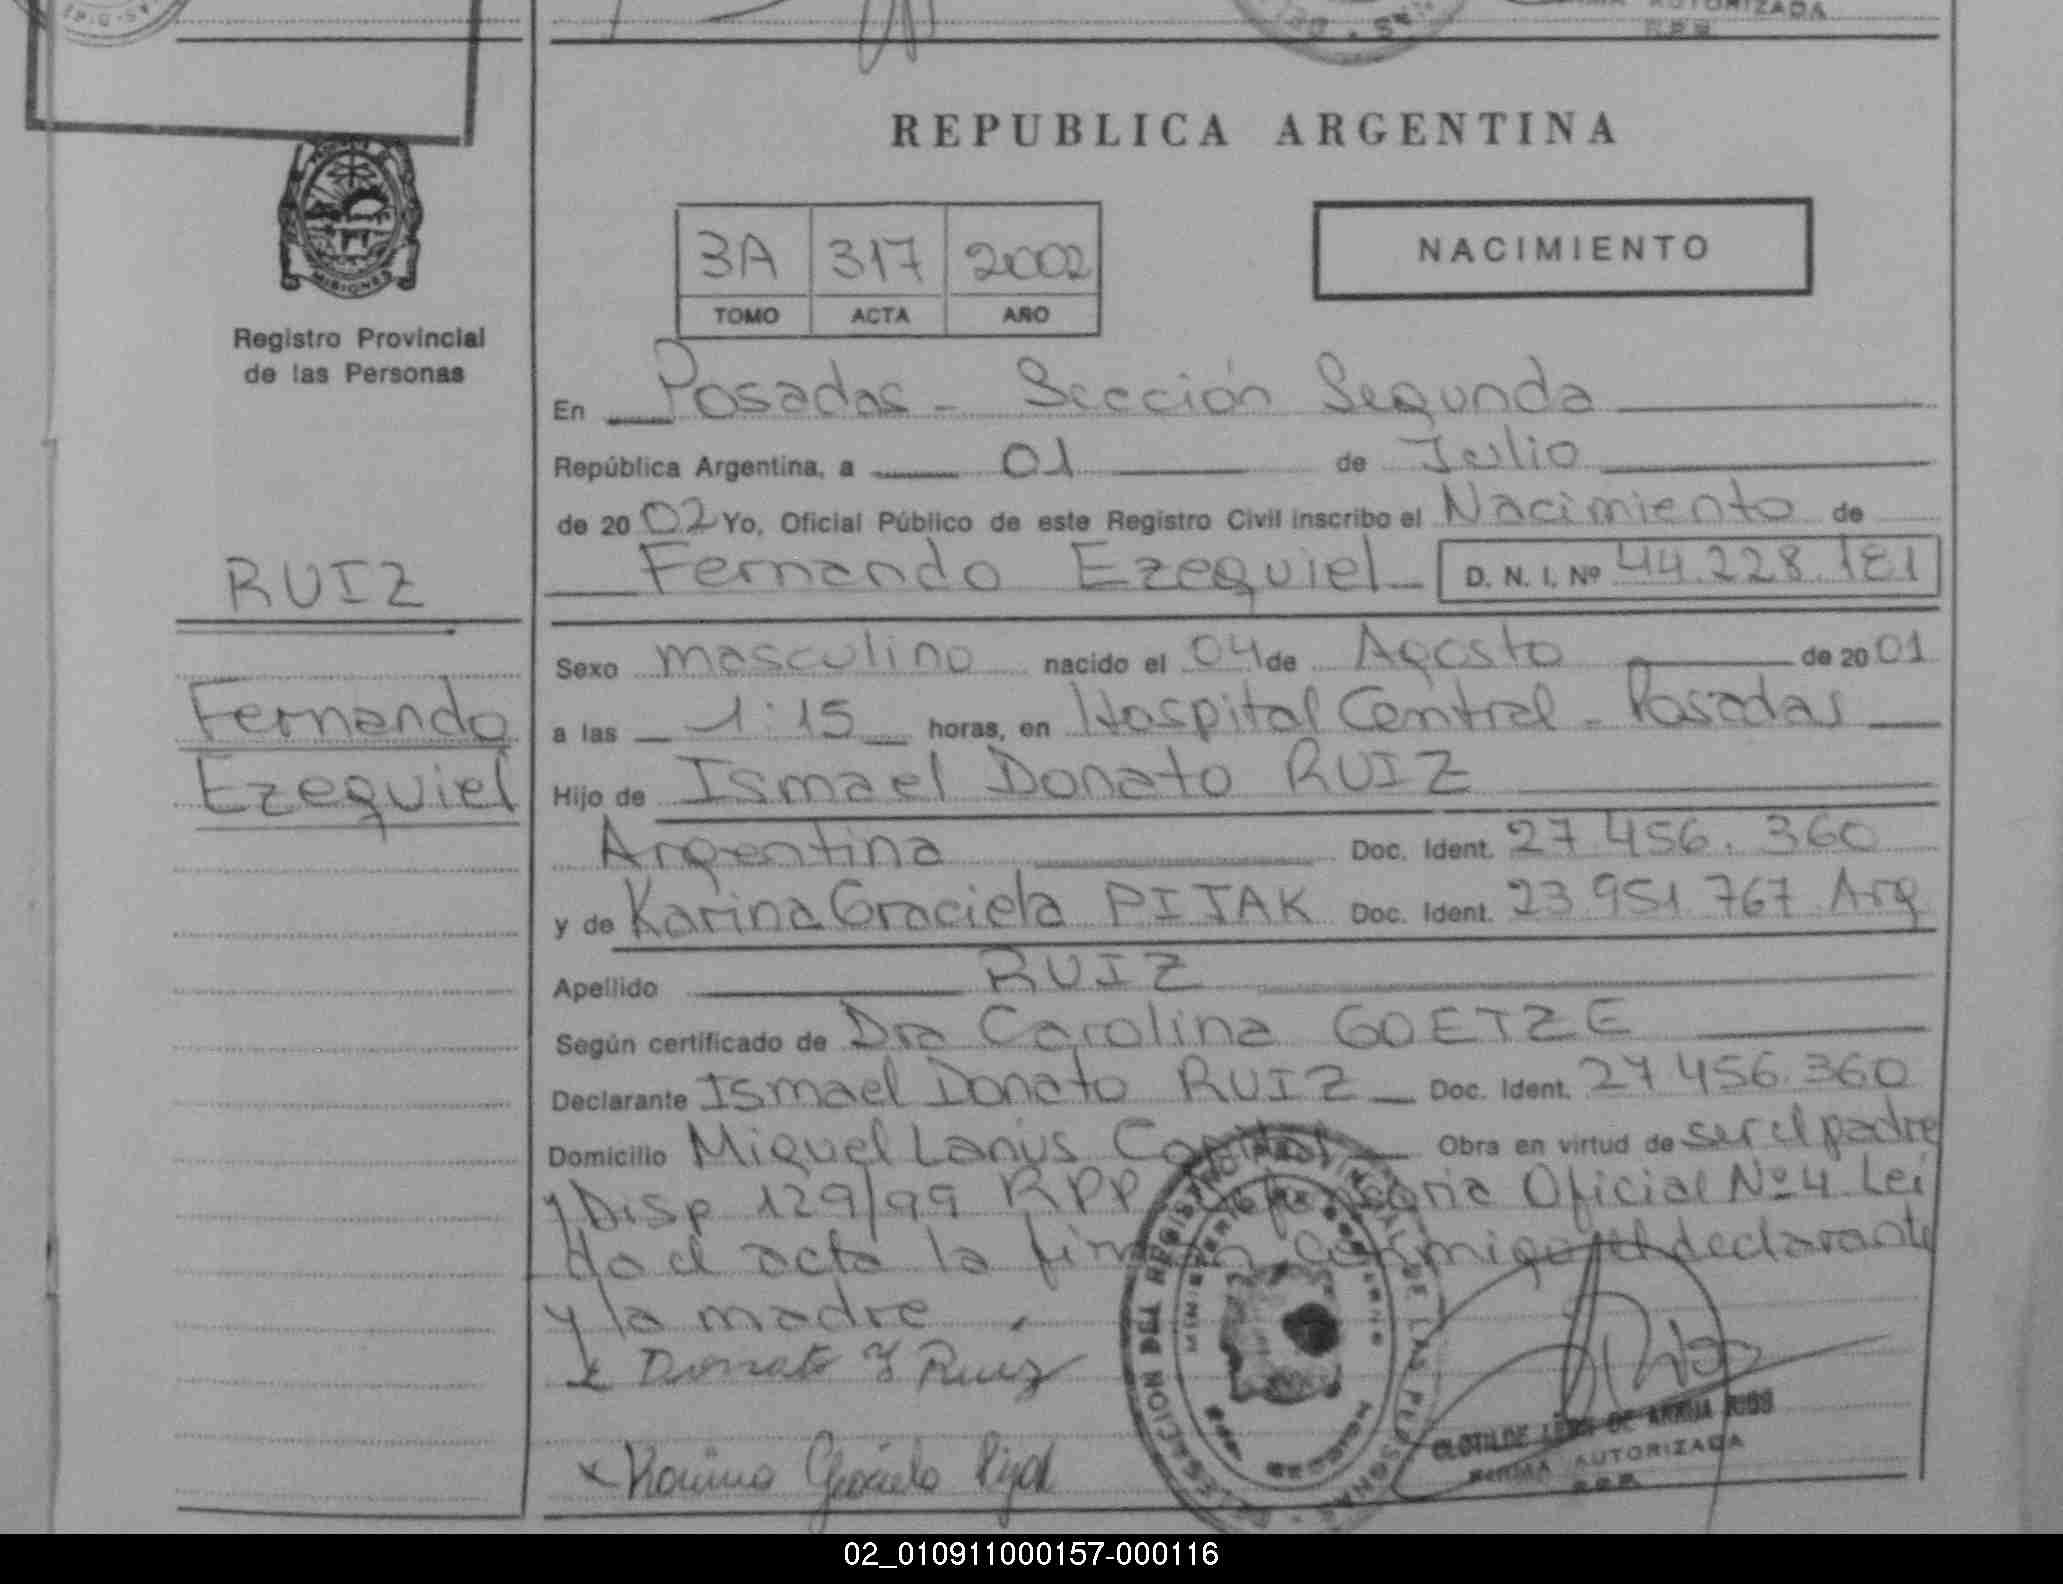 AUTORIZADA
R.P.P.
REPUBLICA ARGENTINA
MISIONES
Registro Provincial
de las Personas
3A 317 2002
TOMO ACTA AÑO
NACIMIENTO
En Posadas - Sección Segunda
República Argentina, a 01 de Julio
de 20 02 Yo, Oficial Público de este Registro Civil inscribo el Nacimiento de
Fernando Ezequiel D. N. I. Nº 44.228.181
RUIZ
Fernando
Ezequiel
Sexo masculino nacido el 04 de Agosto de 20 01
a las 1:15 horas, en Hospital Central - Posadas
Hijo de Ismael Donato RUIZ
Argentina Doc. Ident. 27.456.360
y de Karina Graciela PIJAK Doc. Ident. 23.951.767 Arg
Apellido RUIZ
Según certificado de Dra Carolina GOETZE
Declarante Ismael Donato RUIZ Doc. Ident. 27 456.360
Domicilio Miguel Lanús Capital Obra en virtud de ser el padre
y Disp 129/99 RPP Defensoria Oficial Nº 4 Lei
da el acta la firman conmigo el declarante
y la madre.
x Donato I Ruiz
x Karina Graciela Pijak
DELEGACION DEL REGISTRO PROVINCIAL DE LAS PERSONAS
MINISTERIO DE GOBIERNO
CLOTILDE DE ARRUA
FIRMA AUTORIZADA
R.P.P.
02_010911000157-000116